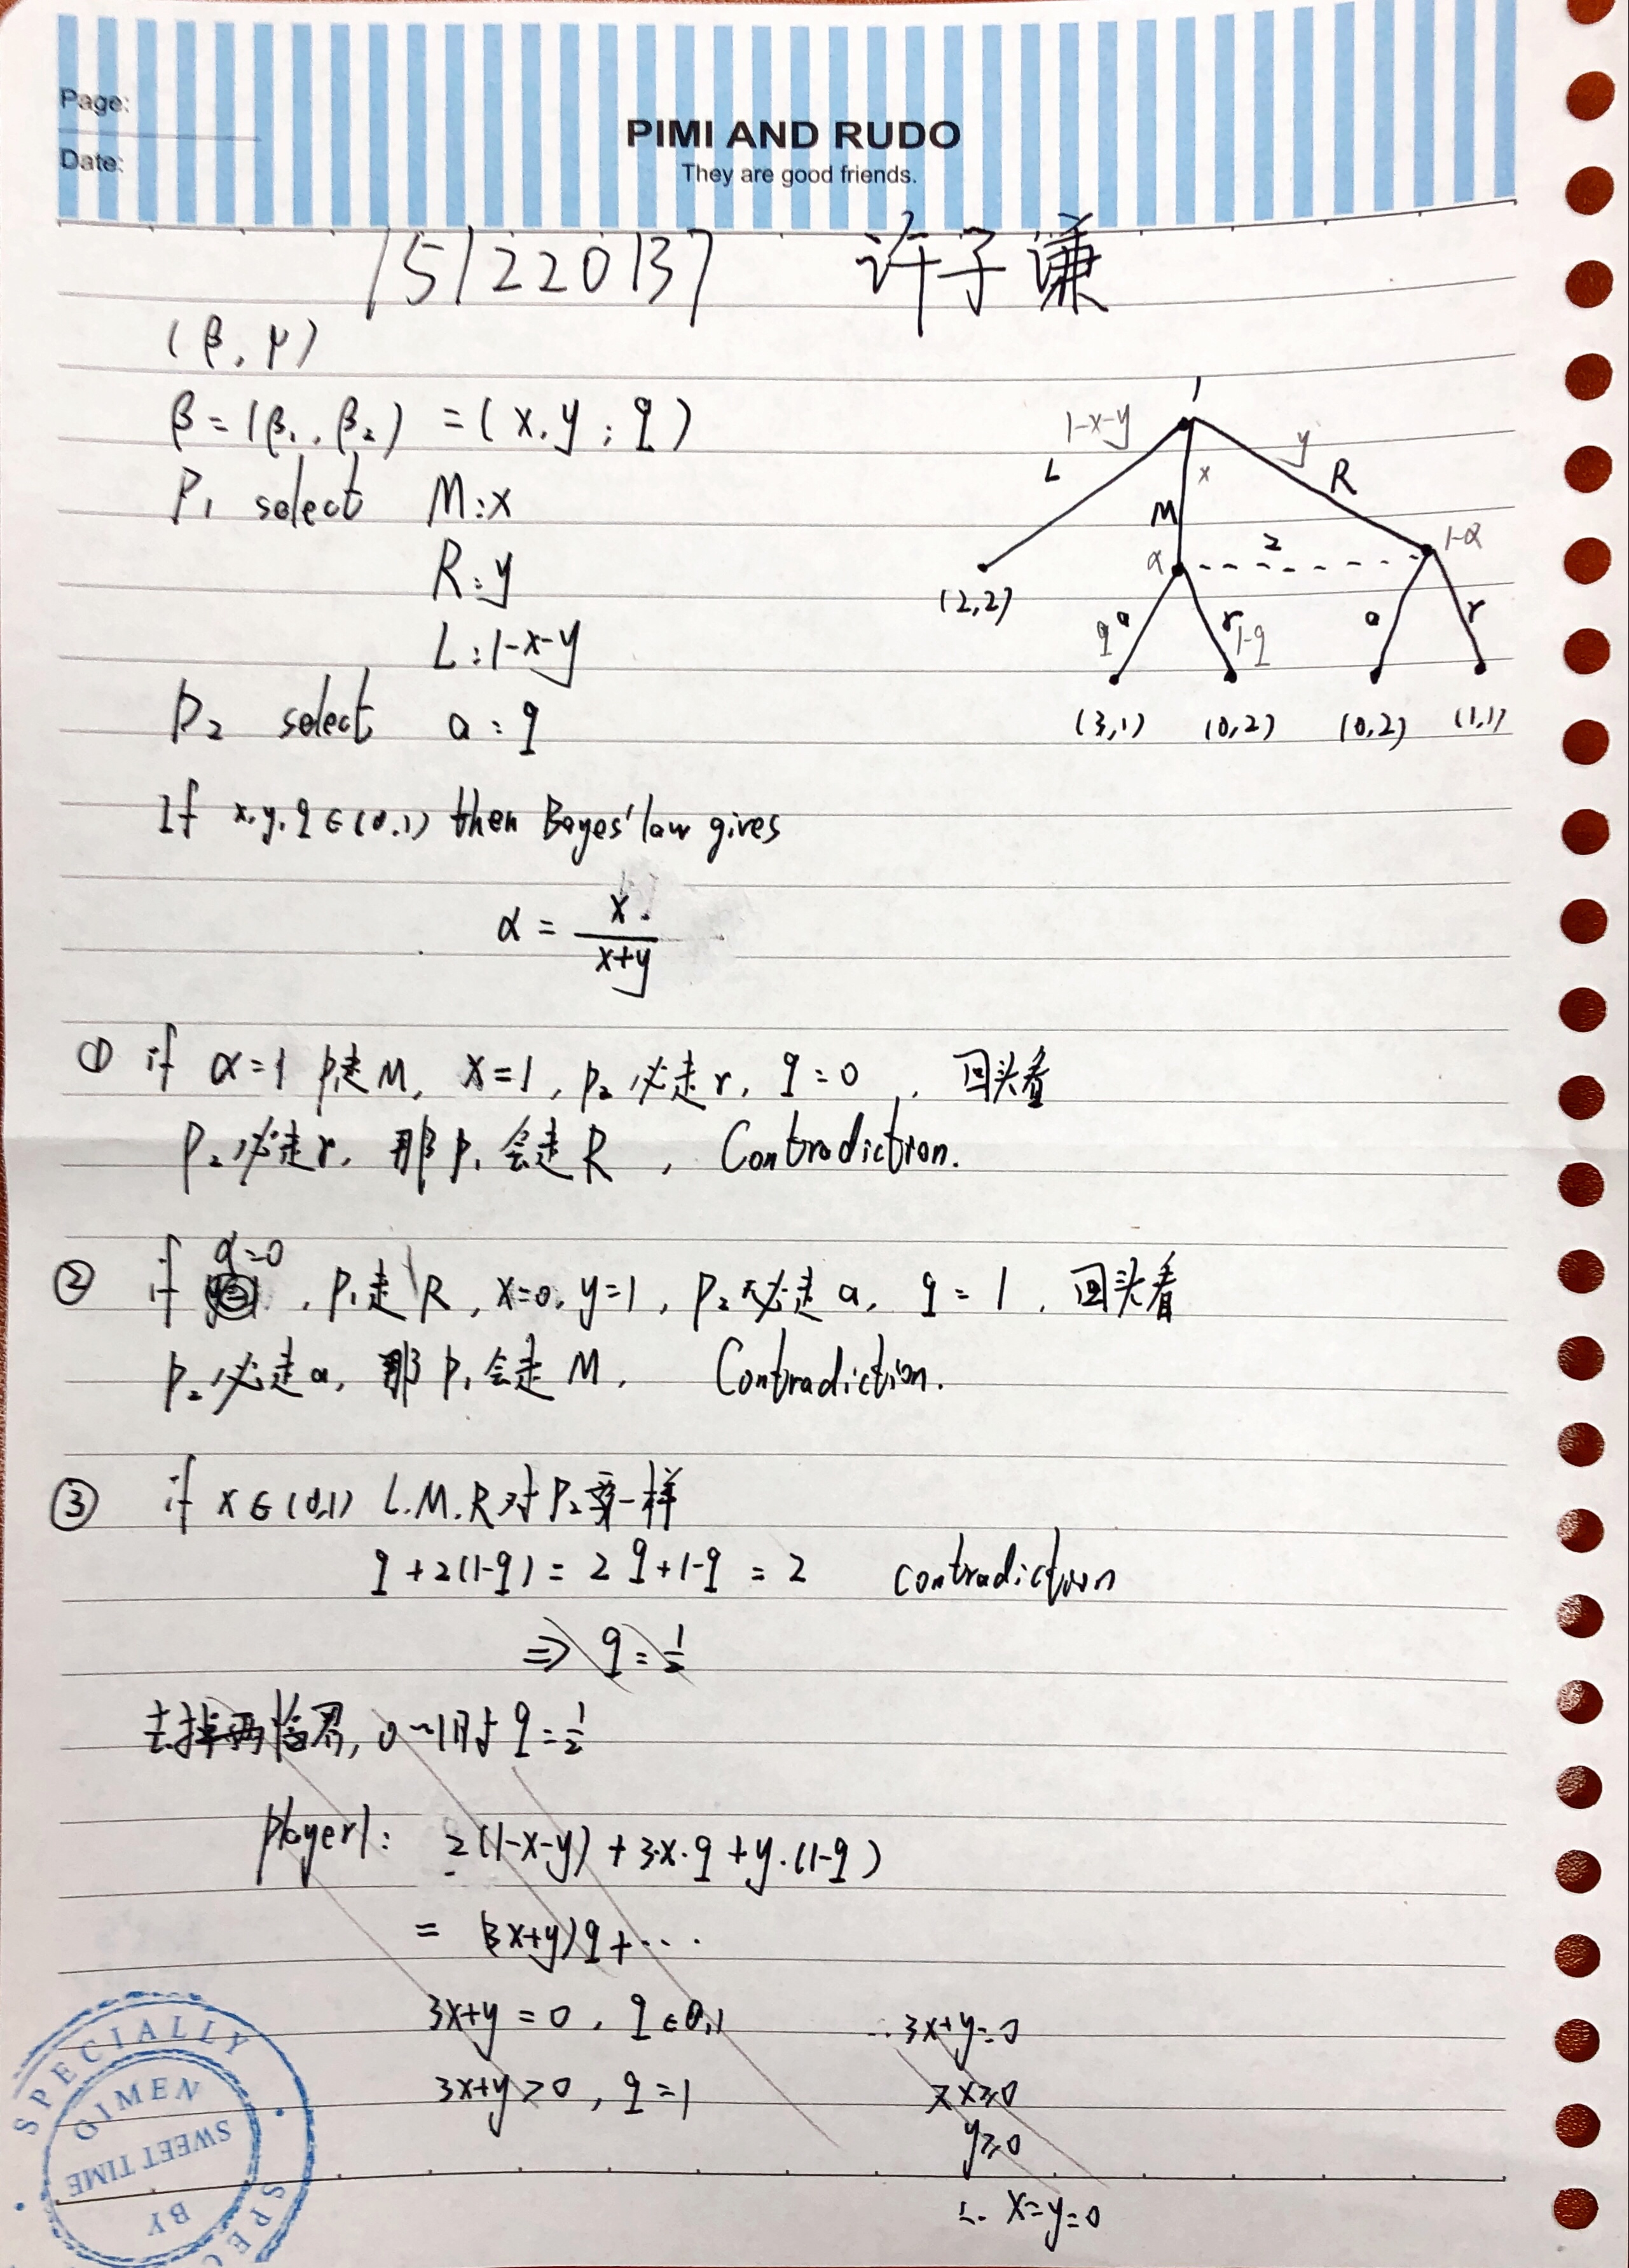 Page:
Date:
PIMI AND RUDO
They are good friends.
151220137 许子谦
(β, μ)
β = (β₁, β₂) = (x, y ; q)
P₁ select M: x
R: y
L: 1-x-y
P₂ select a: q
1
1-x-y
y
L
x
R
M
2
α
1-α
(2,2)
q a
r 1-q
a
r
(3,1) (0,2) (0,2) (1,1)
If x, y, q ∈ (0,1) then Bayes' law gives
α = x / (x+y)
① if α=1 P₁走M, x=1, P₂必走r, q=0, 回头看
P₂必走r, 那P₁会走R, Contradiction.
② if α=0, P₁走R, x=0, y=1, P₂必走a, q=1, 回头看
P₂必走a, 那P₁会走M, Contradiction.
③ if x∈(0,1) L.M.R对P₂ 一样
q+2(1-q) = 2q+1-q = 2 contradiction
⇒ q=½
去掉两 0~1时 q=½
player1: 2(1-x-y)+3·x·q+y·(1-q)
= (3x+y)q+···
3x+y=0, q∈0,1
3x+y>0, q=1
∴ 3x+y=0
x≥0
y≥0
∴ x=y=0
SPECIALLY
QIMEN
SWEET TIME
BY